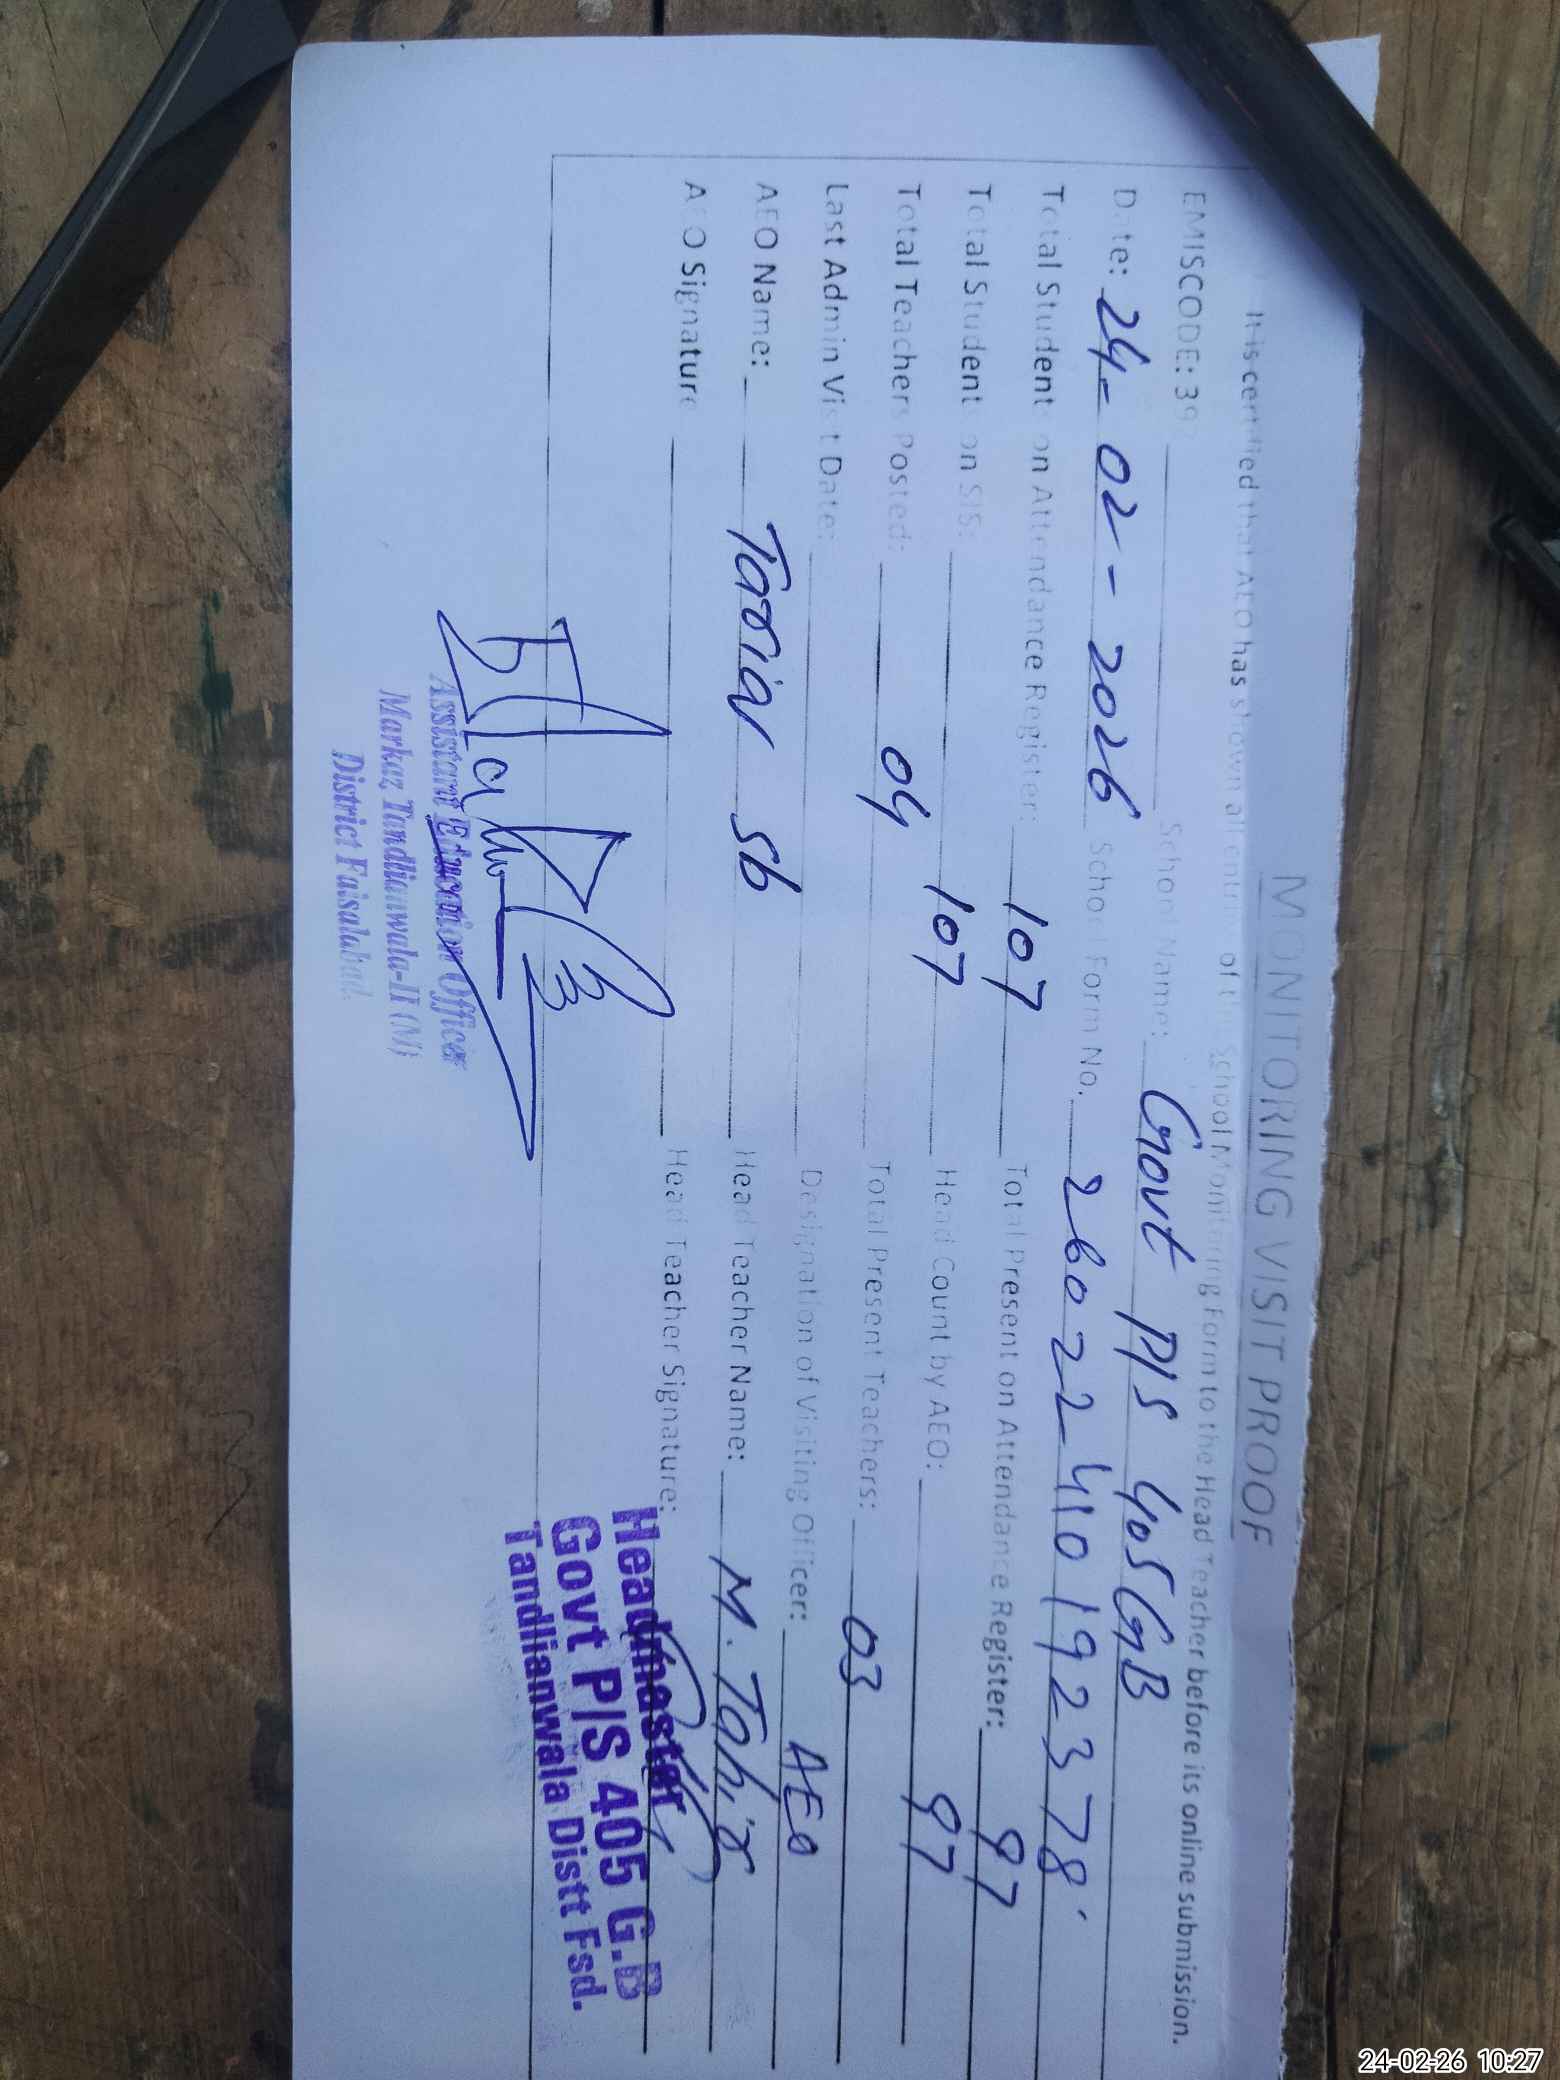 MONITORING VISIT PROOF
It is certified that AEO has shown all entries of the School Monitoring Form to the Head Teacher before its online submission.
EMISCODE: 39 School Name: Govt P/S 405 GB
Date: 24-02-2026 School Form No. 26022410192378
Total Student on Attendance Register: 107 Total Present on Attendance Register: 97
Total Student on SIS: 107 Head Count by AEO: 97
Total Teachers Posted: 04 Total Present Teachers: 03
Last Admin Visit Date: Designation of Visiting Officer: AEO
AEO Name: Tariq sb Head Teacher Name: M. Tahir
AEO Signature Head Teacher Signature:
Headmaster
Govt P/S 405 G.B
Tandlianwala Distt Fsd.
Assistant Education Officer
Markaz Tandlianwala-II (M)
District Faisalabad.
24-02-26 10:27